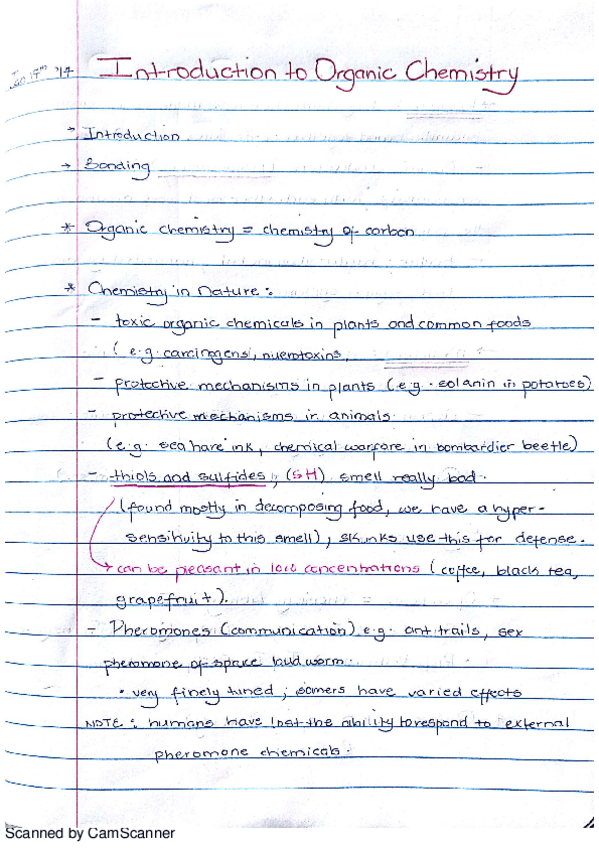 Jan 17th '17 Introduction to Organic Chemistry
→ Introduction
→ Bonding
* Organic chemistry = chemistry of carbon
* Chemistry in Nature :
- toxic organic chemicals in plants and common foods
(e.g. carcinogens, nuerotoxins,
- protective mechanisms in plants (e.g. solanin in potatoes)
- protective mechanisms in animals.
(e.g. sea hare ink, chemical warfare in bombardier beetle)
- thiols and sulfides, (SH) smell really bad.
(found mostly in decomposing food, we have a hyper-
sensitivity to this smell), skunks use this for defense.
→ can be pleasant in low concentrations (coffee, black tea,
grapefruit).
- Pheromones (communication) e.g. ant trails, sex
pheromone of bud worm.
• very finely tuned ; isomers have varied effects
NOTE : humans have lost the ability to respond to external
pheromone chemicals.
Scanned by CamScanner